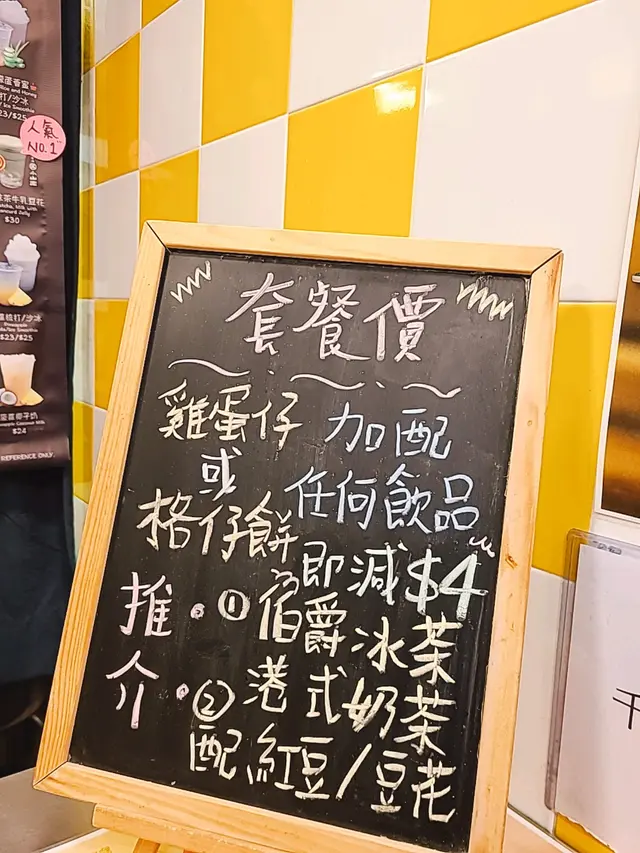 人氣
NO.1
$30
$23/$25
$24
REFERENCE ONLY
套餐價
雞蛋仔 加配
或 任何飲品
格仔餅 即減$4
推介
① 伯爵冰茶
② 港式奶茶
配紅豆/豆花
千